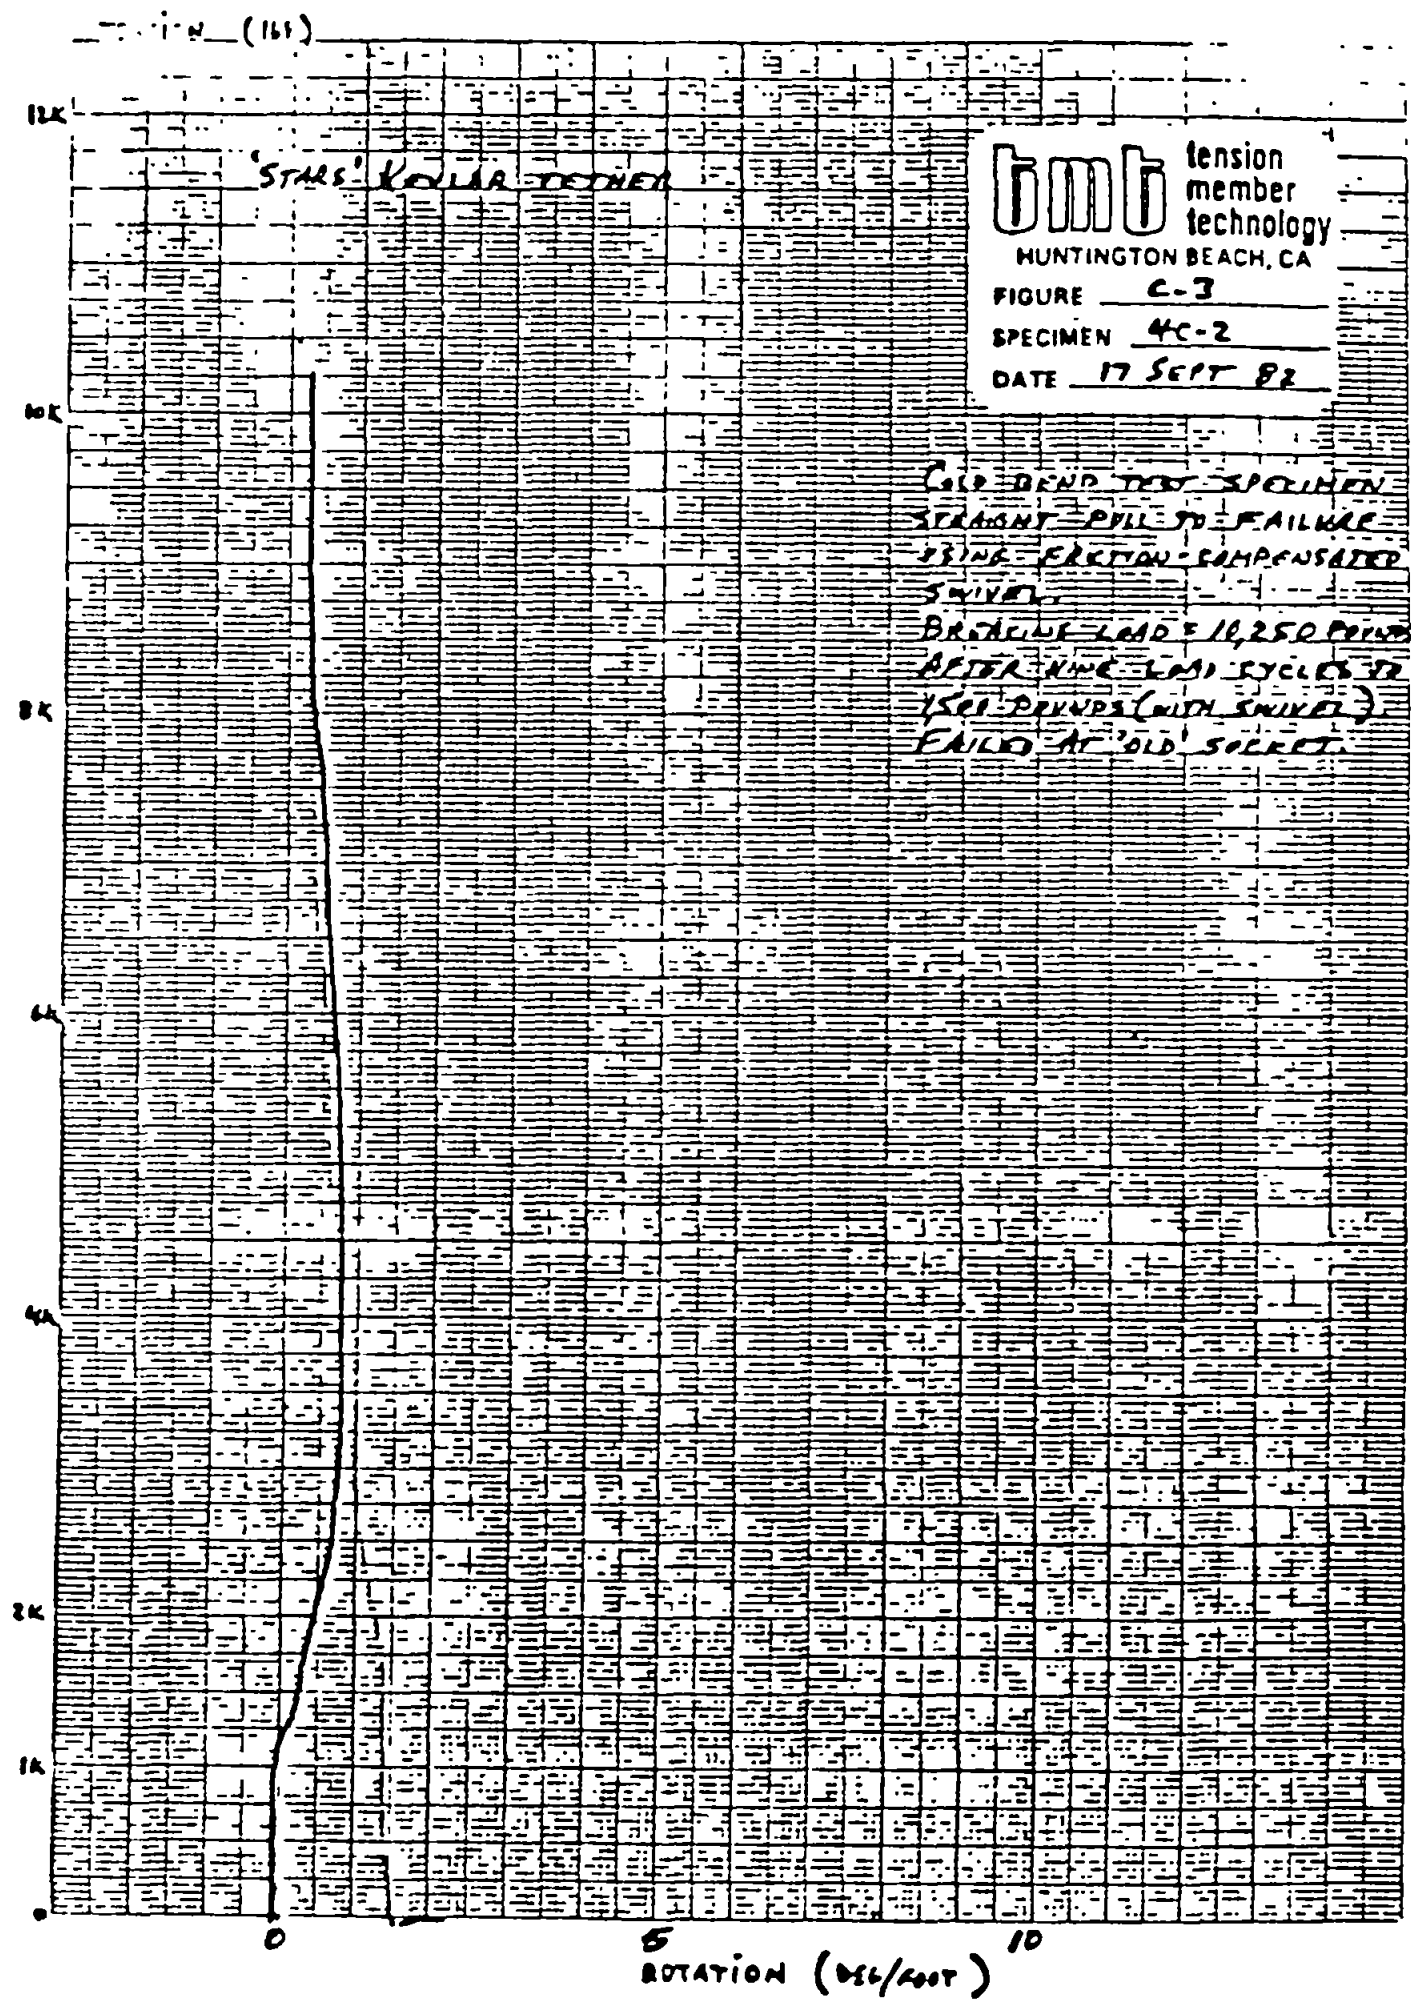 (lbf)
12K
'STARS' KEVLAR TETHER
tmt tension
member
technology
HUNTINGTON BEACH, CA
FIGURE C-3
SPECIMEN 4C-2
DATE 17 SEPT 82
10K
COLD BEND TEST SPECIMEN
STRAIGHT PULL TO FAILURE
USING FRICTION-COMPENSATED
SWIVEL.
BREAKING LOAD = 10,250 POUNDS
AFTER NINE LOAD CYCLES TO
POUNDS (WITH SWIVEL).
FAILED AT 'OLD' SOCKET.
8K
6K
4K
2K
1K
0
0 5 10
ROTATION (DEG/FOOT)